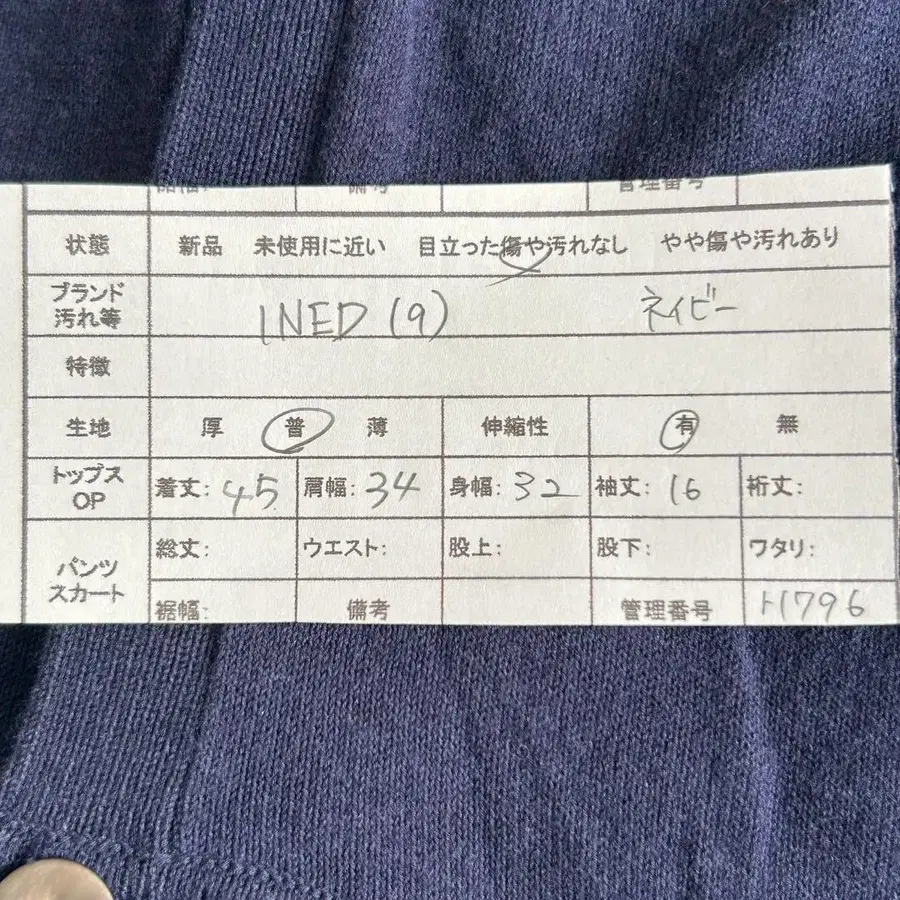 状態 新品 未使用に近い 目立った傷や汚れなし やや傷や汚れあり
ブランド
汚れ等 INED (9) ネイビー
特徴
生地 厚 普 薄 伸縮性 有 無
トップス
OP 着丈: 45 肩幅: 34 身幅: 32 袖丈: 16 裄丈:
パンツ
スカート 総丈: ウエスト: 股上: 股下: ワタリ:
裾幅: 備考 管理番号 ト1796